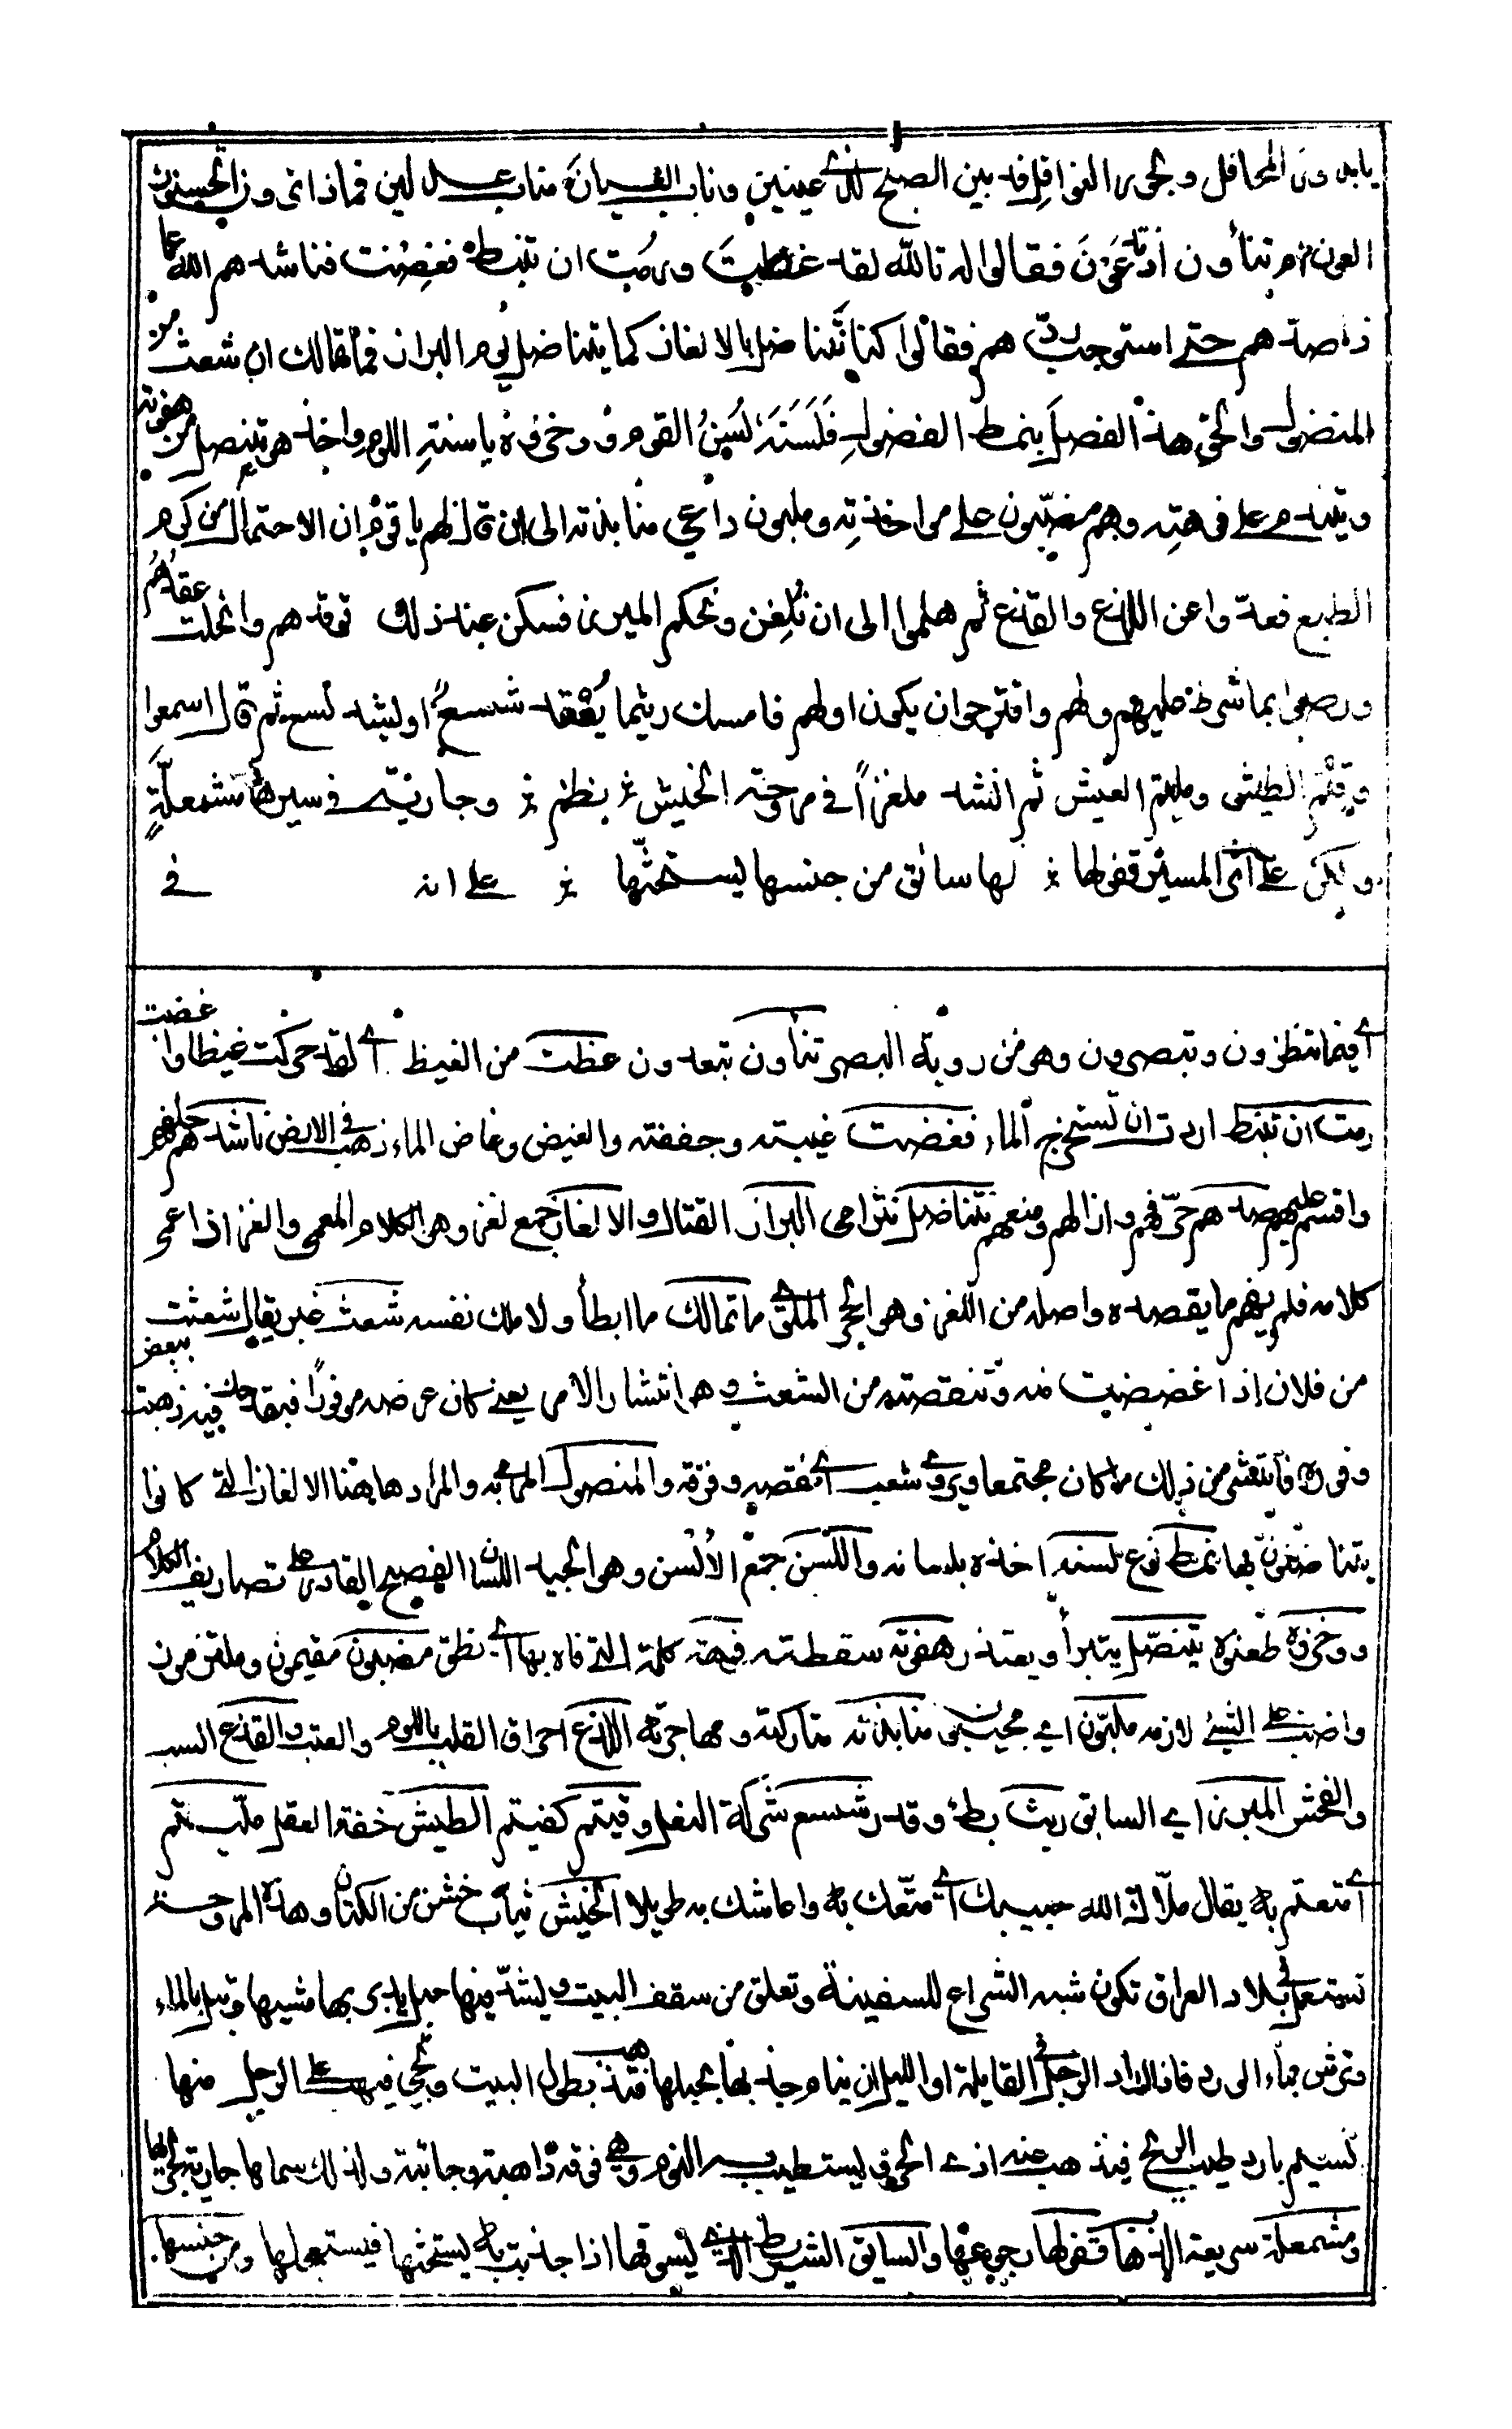 يا بدور المحافل وبحور النوافل قد بين الصبح لذي عينين وناب العيان مناب عدلين فماذا ترون أتحسنون
العون أم تنأون إذ تدعون فقالوا له تالله لقد غظت ورمت أن تنبط فغضت فناشدهم الله عما
ذا صدهم حتى استوجب ردهم فقالوا كنا نتناضل بالالغاز كما يتناضل يوم البراز فما تمالك ان شعث من
المنضول والحق هذا الفضل بنمط الفضول فلسنته لسن القوم ووخزوه باسنة اللوم واخذ هو يتنصل من هفوته
ويتندم على فوهته وهم مضبون على مواخذته وملبون داعي منابذته الى ان قال لهم يا قوم ان الاحتمال من كرم
الطبع فعدوا عن اللذع والقذع ثم هلموا الى ان نلغز ونحكم المبرز فسكن عند ذلك توقدهم وانحلت عقدهم
ورضوا بما شرط عليهم ولهم واقترحوا ان يكون اولهم فامسك ريثما يعقد شسع او يشد نسع ثم قال اسمعوا
وقيتم الطيش ومليتم العيش ثم انشد ملغزا في مروحة الخيش بنظم وجارية في سيرها مشمعلة
ولكن على اثر المسير قفولها لها سائق من جنسها يستحثها على انه في
أي فيما تنظرون وتبصرون وهو من روية البصر تنأون تبعدون غظت من الغيظ أي لقد حركت غيظا وان غضت
رمت ان تنبط اردت ان تستخرج الماء فغضت غيبته وجففته والغيض وغاض الماء ذهب في الارض ناشدهم حلفهم
واقسم عليهم صدهم حرفهم وازالهم ومنعهم نتناضل نترامى البراز القتال والالغاز جمع لغز وهو الكلام المعمى والغز اذا عمى
كلامه فلم يفهم ما يقصده واصله من اللغز وهو الحجر الملتوي ما تمالك ما ابطأ ولا ملك نفسه شعث غبر يقال شعثت
من فلان إذا غضضت منه وتنقصته من الشعث وهو انتشار الامر يعني كان عرضه موفورا فبقدحك فيه ذهبت ببعض
وفوره فانتشر من ذلك ما كان مجتمعا ويروى شعب أي نقصه وفرقه والمنضول المرمى به والمراد ها هنا الالغاز التي كانوا
يتناضلون بها نمط نوع لسنه اخذه بلسانه واللسن جمع الألسن وهو الجيد اللسان الفصيح القادر على تصاريف الكلام
ووخزوه طعنوه يتنصل يتبرأ ويعتذر هفوته سقطته فوهته كلمة التي فاه بها أي نطق مضبون مقيمون وملتزمون
واضب على الشيء لازمه ملبون اي مجيبون منابذته متاركته ومهاجرته اللذع احراق القلب باللوم والعتب والقذع السب
والفحش المبرز اي السابق ريث بطء وقدر شسع شركة النعل وقيتم كفيتم الطيش خفة العقل مليتم
أي متعتم به يقال ملاك الله حبيبك أي متعك به واعاشك به طويلا الخيش ثياب خشن من الكتان وهذه المروحة
تستعمل في بلاد العراق تكون شبه الشراع للسفينة وتعلق من سقف البيت ويشد منها حبل يدبر بها مشيها وتبل بالماء
وترش بماء الورد فاذا اراد الرجل في القايلة او الليل ان ينام جذبها بحبلها فتذهب بطول البيت وتجي فيهب على الرجل منها
نسيم بارد طيب الريح فيذهب عنه اذى الحر ويستطيب به النوم وهي فوقه ذاهبة وجائية ولذلك سماها جارية لجريها
ومشمعلة سريعة الذهاب قفولها رجوعها والسايق الشريط الذي يسوقها اذا جذبت به يستحثها فيستعجلها ومن جنسها